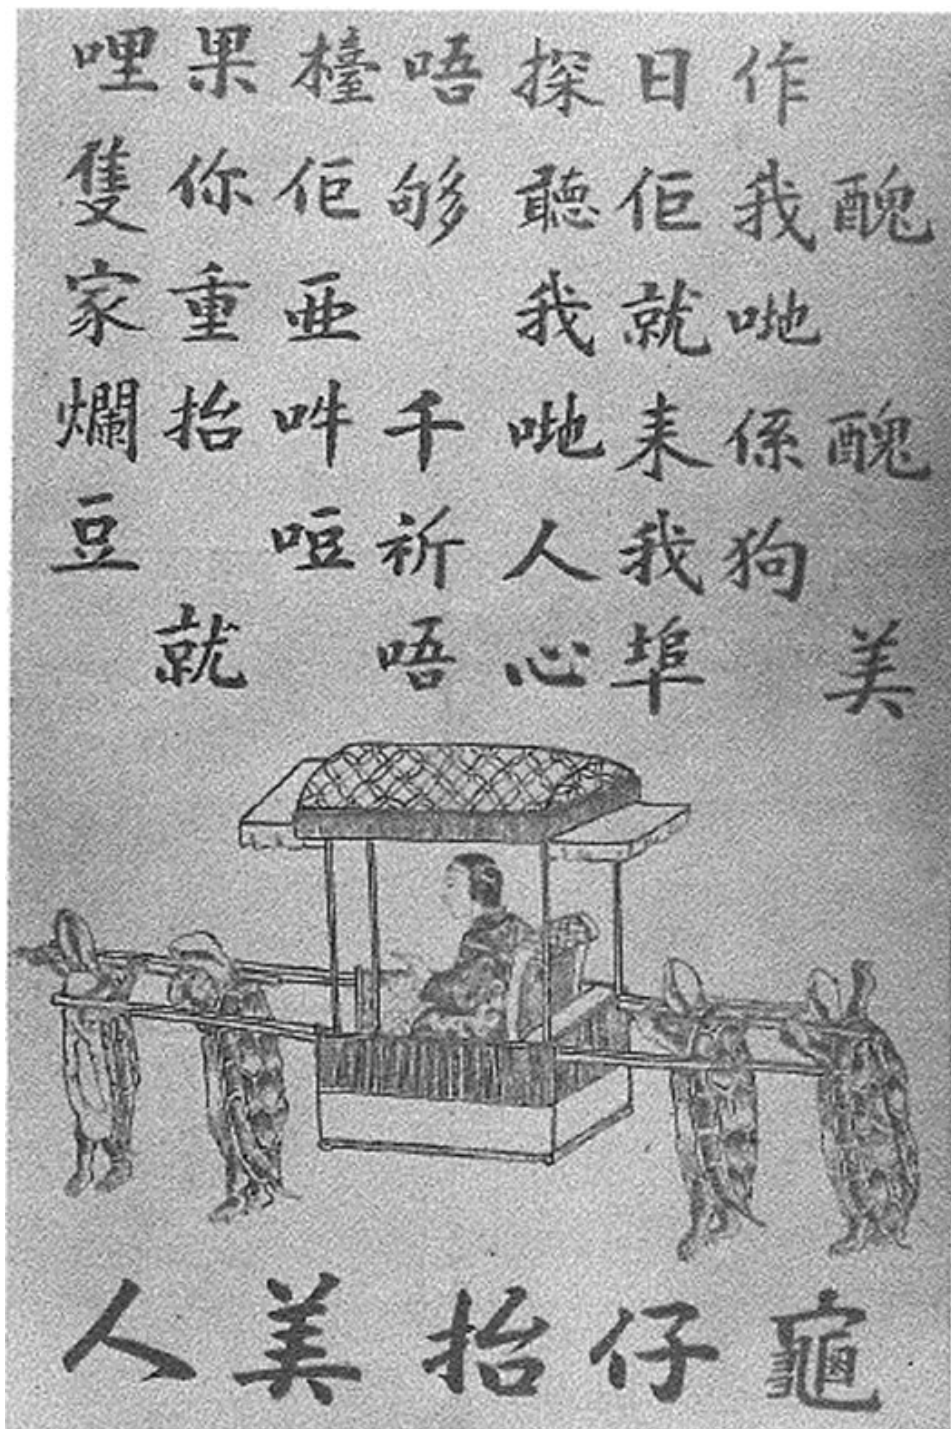 醜醜美
作我哋係狗
日佢就耒我埠
探聽我哋人心
唔够千祈唔
檯佢亜吽哣
果你重抬就
哩隻家爛豆
龜仔抬美人